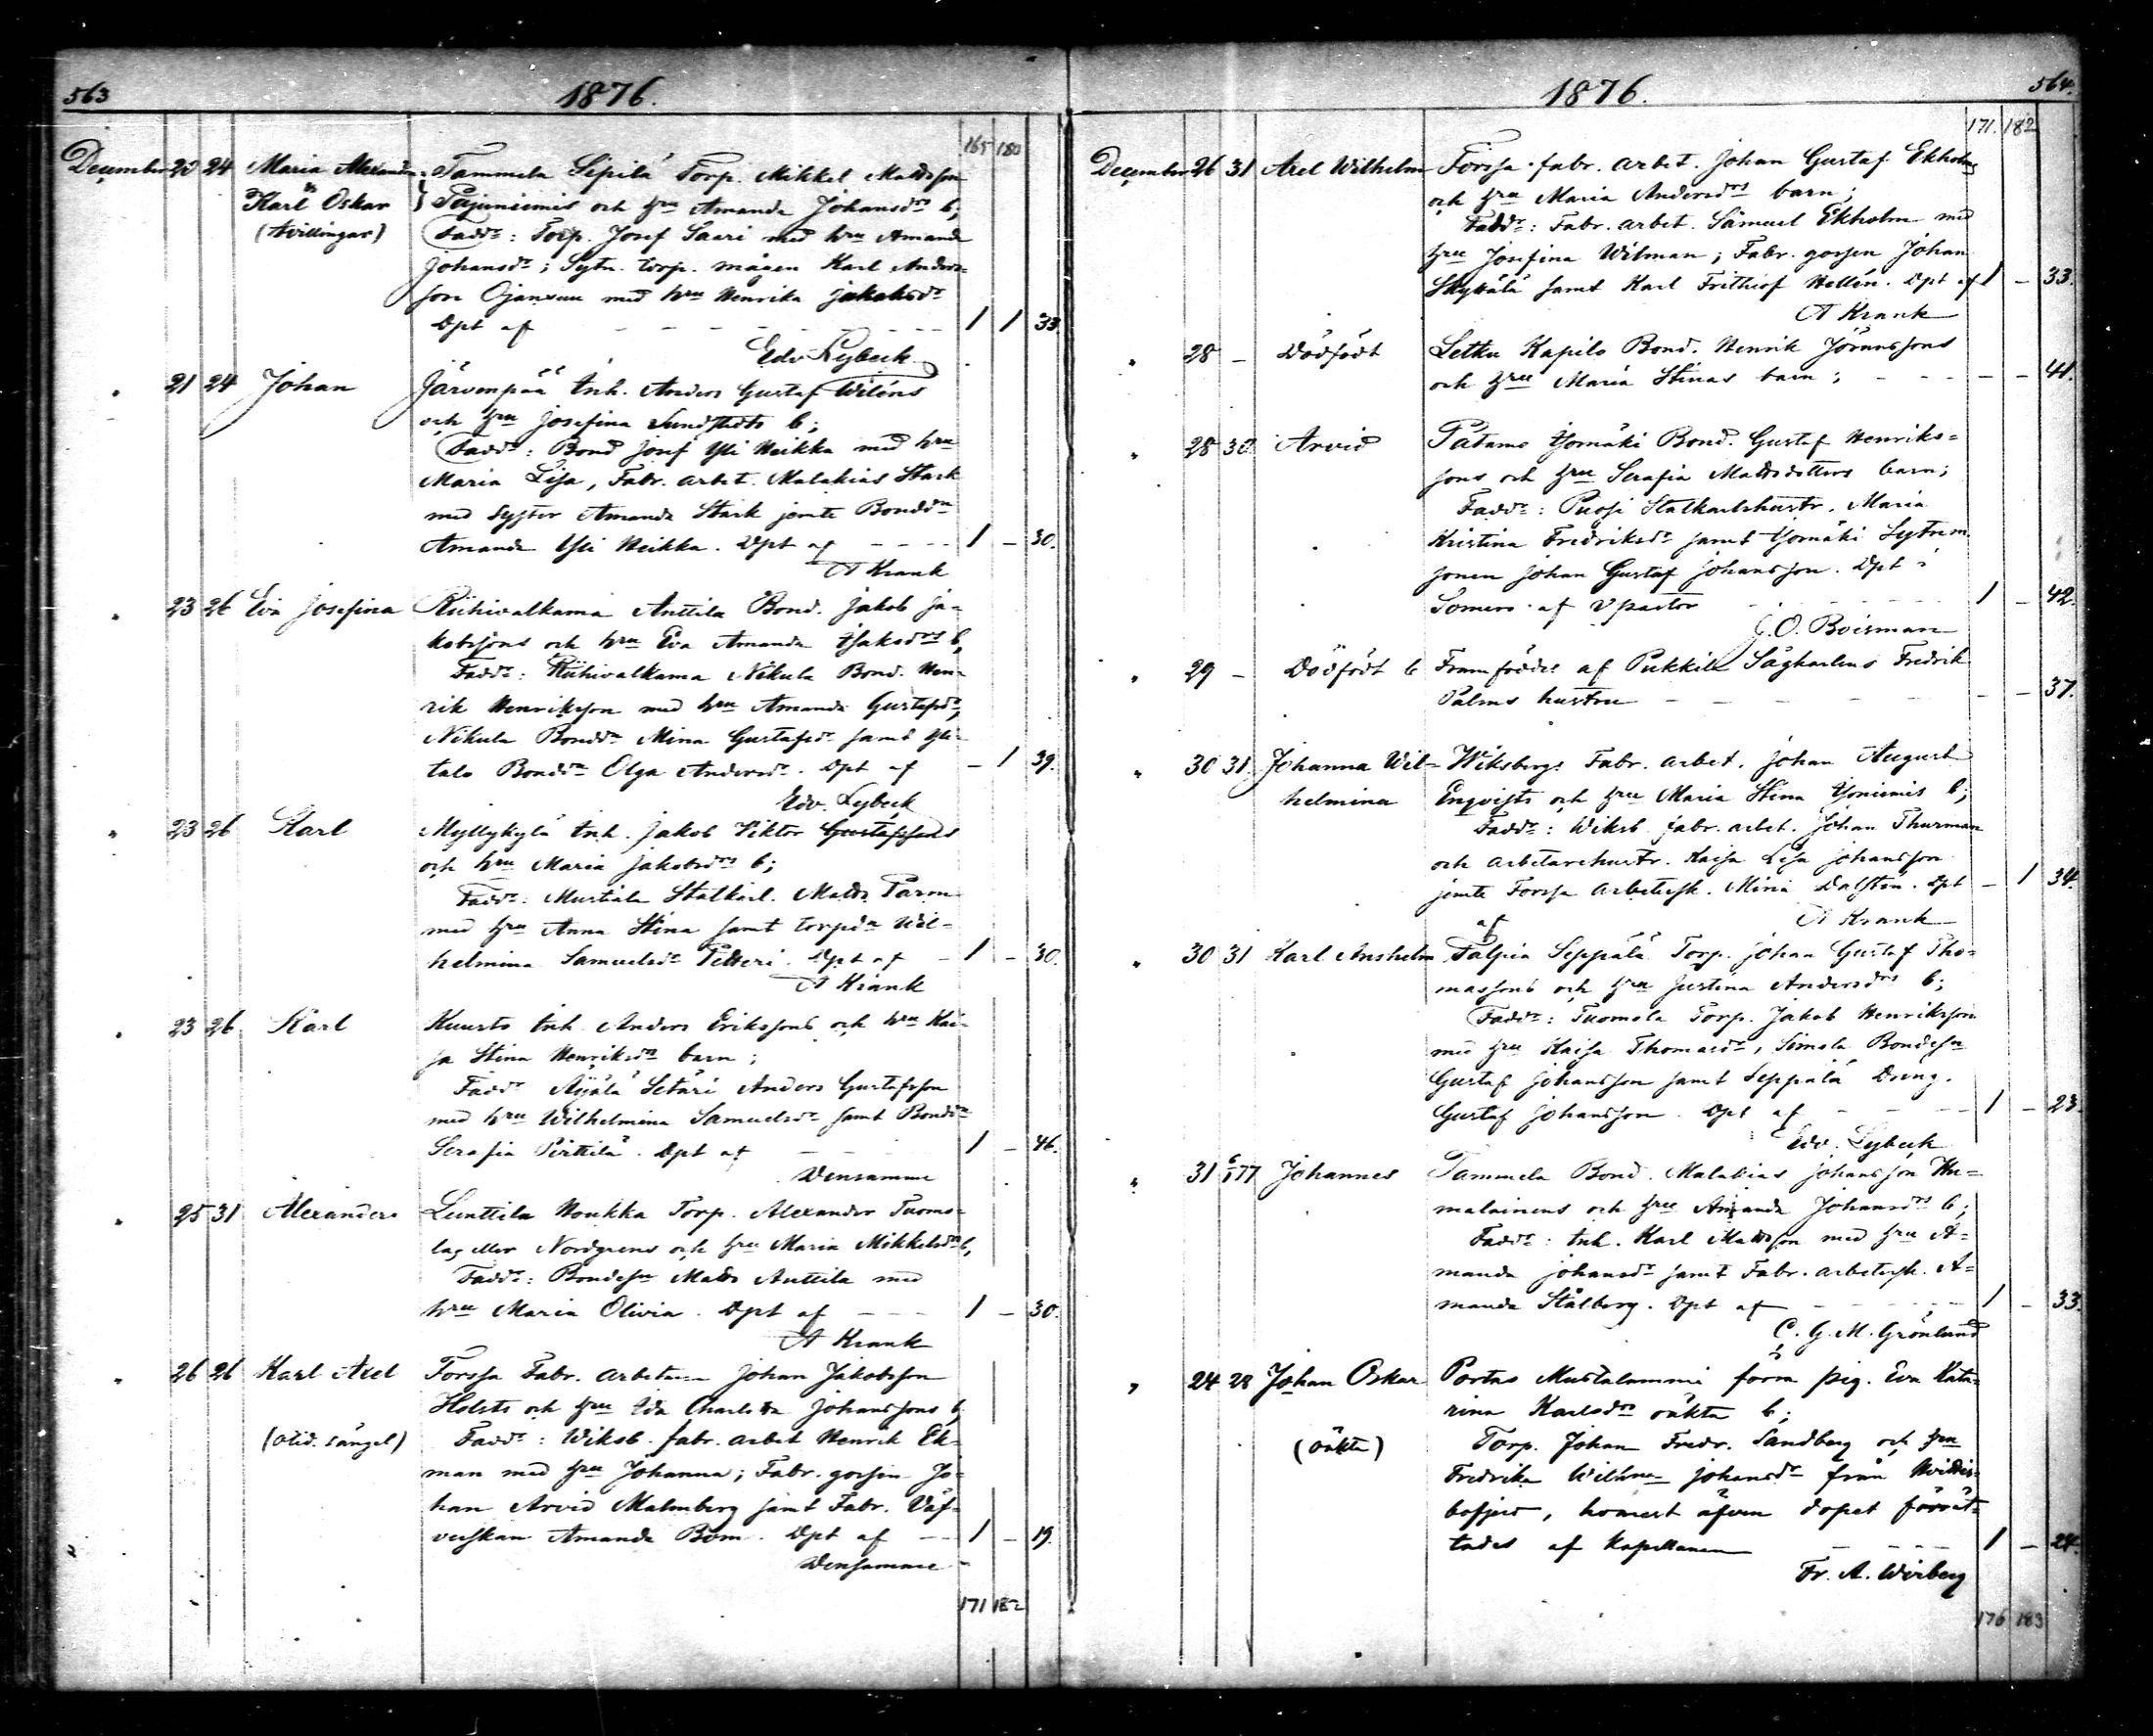 563
1876.
165 180
December 20 24 Maria Alexandra Tammela Sipilä Torp. Mikkel Mattsson
Karl Oskar Pajuniemis och hru Amanda Johansdrs b;
(tvillingar) Faddr: Torp. Josef Saari med hru Amanda
Johansdr; Sytn. torp. mågen Karl Anders=
son Ojansuu med hru Henrika Jakobsdr
Dpt af 1 1 33.
Edv Lybeck
" 21 24 Johan Järvenpää Inh. Anders Gustaf Wiléns
och hru Josefina Sundstedts b;
Faddr: Bond Josef Yli Heikka med hru
Maria Lisa, Fabr. arbet. Malakias Stark
med syster Amanda Stark jemte Bonddn
Amanda Yli Heikka. Dpt af 1 – 30.
A Krank
" 23 26 Eva Josefina Riihivalkama Anttila Bond. Jakob Ja=
kobssons och hru Eva Amanda Isaksdrs b,
Faddr: Riihivalkama Nikula Bond. Hen=
rik Henriksson med hru Amanda Gustafsdr,
Nikula Bonddn Mina Gustafsdr samt Yli=
talo Bonddn Olga Andersdr. Dpt af – 1 39.
Edv. Lybeck
" 23 26 Karl Myllykylä Inh. Jakob Viktor Gustafssons
och hru Maria Jakobsdrs b;
Faddr: Mustiala Statkarl. Matts Parm
med hru Anna Stina samt torpdn Wil=
helmina Samuelsdr Petteri. Dpt af 1 – 30.
A Krank
" 23 26 Karl Kuusto Inh. Anders Erikssons och hru Kai=
sa Stina Henriksdrs barn;
Faddr Äyälä Setäri Anders Gustafsson
med hru Wilhelmina Samuelsdr samt Bonddn
Serafia Pirttilä. Dpt af 1 – 46.
Densamme
" 25 31 Alexander Lunttila Noukka Torp. Alexander Tuomo=
las eller Nordgrens och hru Maria Mikkelsdrs b,
Faddr: Bondesn Matts Anttila med
hru Maria Olivia. Dpt af 1 – 30.
A Krank
" 26 26 Karl Axel Forssa Fabr. arbetaren Johan Jakobsson
Holsts och hru Ida Charlotta Johanssons b,
(otid. sängel) Faddr: Wiksb. fabr. arbet Henrik Ek=
man med hru Johanna; Fabr. gossen Jo=
han Arvid Malmberg samt Fabr. Väf=
verskan Amanda Bom. Dpt af 1 – 19.
Densamme
171 182
1876.
564.
171. 182
December 26 31 Axel Wilhelm Forssa fabr. arbet. Johan Gustaf Ekholms
och hru Maria Andersdrs barn;
Faddr: Fabr. arbet. Samuel Ekholm med
hru Josefina Wilman; Fabr. gossen Johan
Skyttälä samt Karl Frithiof Hellén. Dpt af 1 – 33.
A Krank
" 28 – Dödfödt Letku Kapilo Bond. Henrik Jöranssons
och hru Maria Stinas barn; – – 41.
" 28 30. Arvid Patamo Yomäki Bond. Gustaf Henriks=
sons och hru Serafia Mattsdotters barn;
Faddr: Puosi Statkarlshustr. Maria
Kristina Fredriksdr samt Yomäki Sytnm.
sonen Johan Gustaf Johansson. Dpt i
Somero af Vpastor 1 – 42.
J. O. Boisman
" 29 – Dödfödt b Framföddes af Pukkila Sågkarlens Fredrik
Palms hustru – – 37.
" 30 31. Johanna Wil= Wiksbergs Fabr. arbet. Johan August
helmina Enqvists och hru Maria Stina Yoniemis b;
Faddr: Wiksb. fabr. arbet. Johan Thurman
och arbetarehustr. Kaisa Lisa Johansson
jemte Forssa arbetersk. Mina Dalsten. Dpt – 1 34.
af A Krank
" 30 31 Karl Anshelm Talpia Seppälä Torp. Johan Gustaf Tho=
massons och hru Justina Andersdrs b;
Faddr: Tuomola Torp. Jakob Henriksson
med hru Kaisa Thomasdr, Simola Bondesn
Gustaf Johansson samt Seppälä Dreng.
Gustaf Johansson. Dpt af 1 – 23.
Edv. Lybeck
" 31 6/1 77 Johannes Tammela Bond. Malakias Johansson Hu=
malainens och hru Amanda Johansdrs b;
Faddr: Inh. Karl Mattsson med hru A=
manda Johansdr samt Fabr. arbetersk. A=
manda Stålberg. Dpt af 1 – 33.
C. G. M. Grönlund
" 24 28 Johan Oskar Portas Mustalammi forra pig. Eva Kata=
rina Karlsdrs oäkta b;
(oäkta) Torp. Johan Fredr. Sandberg och hru
Fredrika Wilhna Johansdr från Hvittis=
bofjerd, hvarest äfven dopet förrät=
tades af Kapellanen 1 – 24.
Fr. A. Wirberg
176 183